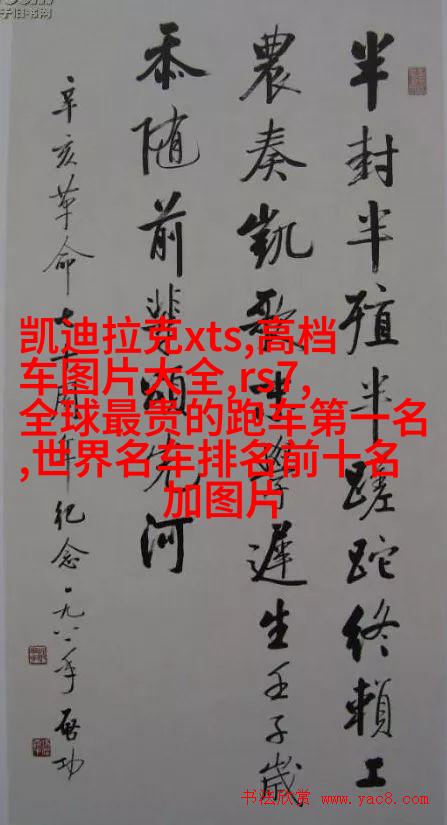 半封半殖半蹉跎终赖工
農奏凱歌末學遲生壬子歲
忝随前輩頌先河
辛亥革命七十周年纪念一九八一年 啓功
凯迪拉克xts,高档
车图片大全,rs7,
全球最贵的跑车第一名
,世界名车排名前十名
加图片
书法欣赏 www.yac8.com